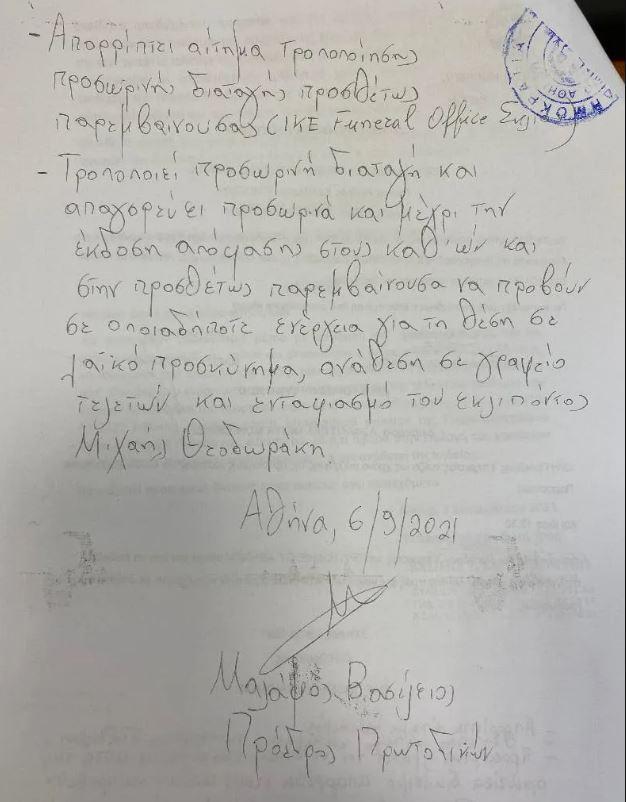 - Απορρίπτει αίτημα τροποποίησης
προσωρινής διαταγής προσθέτως
παρεμβαίνουσας (ΙΚΕ Funeral Office
- Τροποποιεί προσωρινή διαταγή και
απαγορεύει προσωρινά και μέχρι την
έκδοση απόφασης στους καθ'ών και
στην προσθέτως παρεμβαίνουσα να προβούν
σε οποιαδήποτε ενέργεια για τη θέση σε
λαϊκό προσκύνημα, ανάθεση σε γραφείο
τελετών και ενταφιασμό του εκλιπόντος
Μιχαήλ Θεοδωράκη.
Αθήνα, 6/9/2021
Βασίλειος
Πρόεδρος Πρωτοδικών